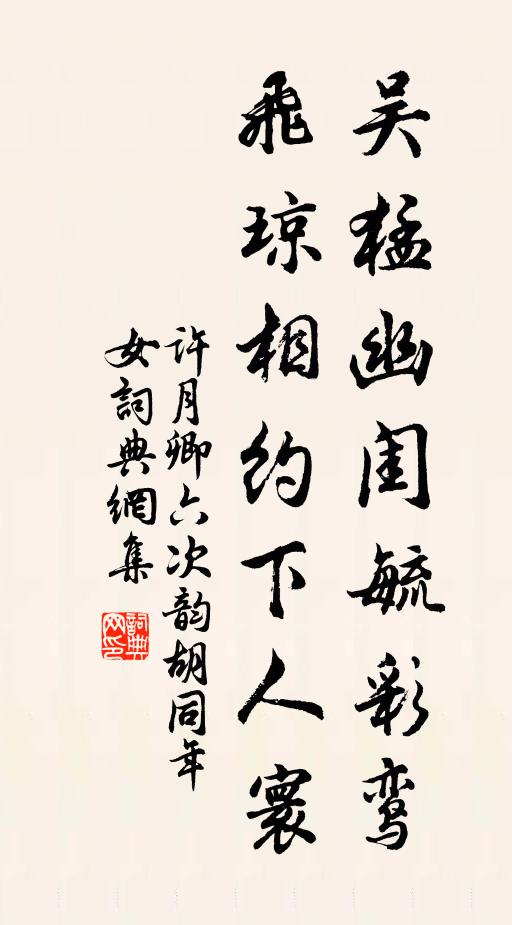 吴猛幽闺毓彩鸾
飛琼相约下人寰
许月卿六次韵胡同年
女詞典網集
詞典网印